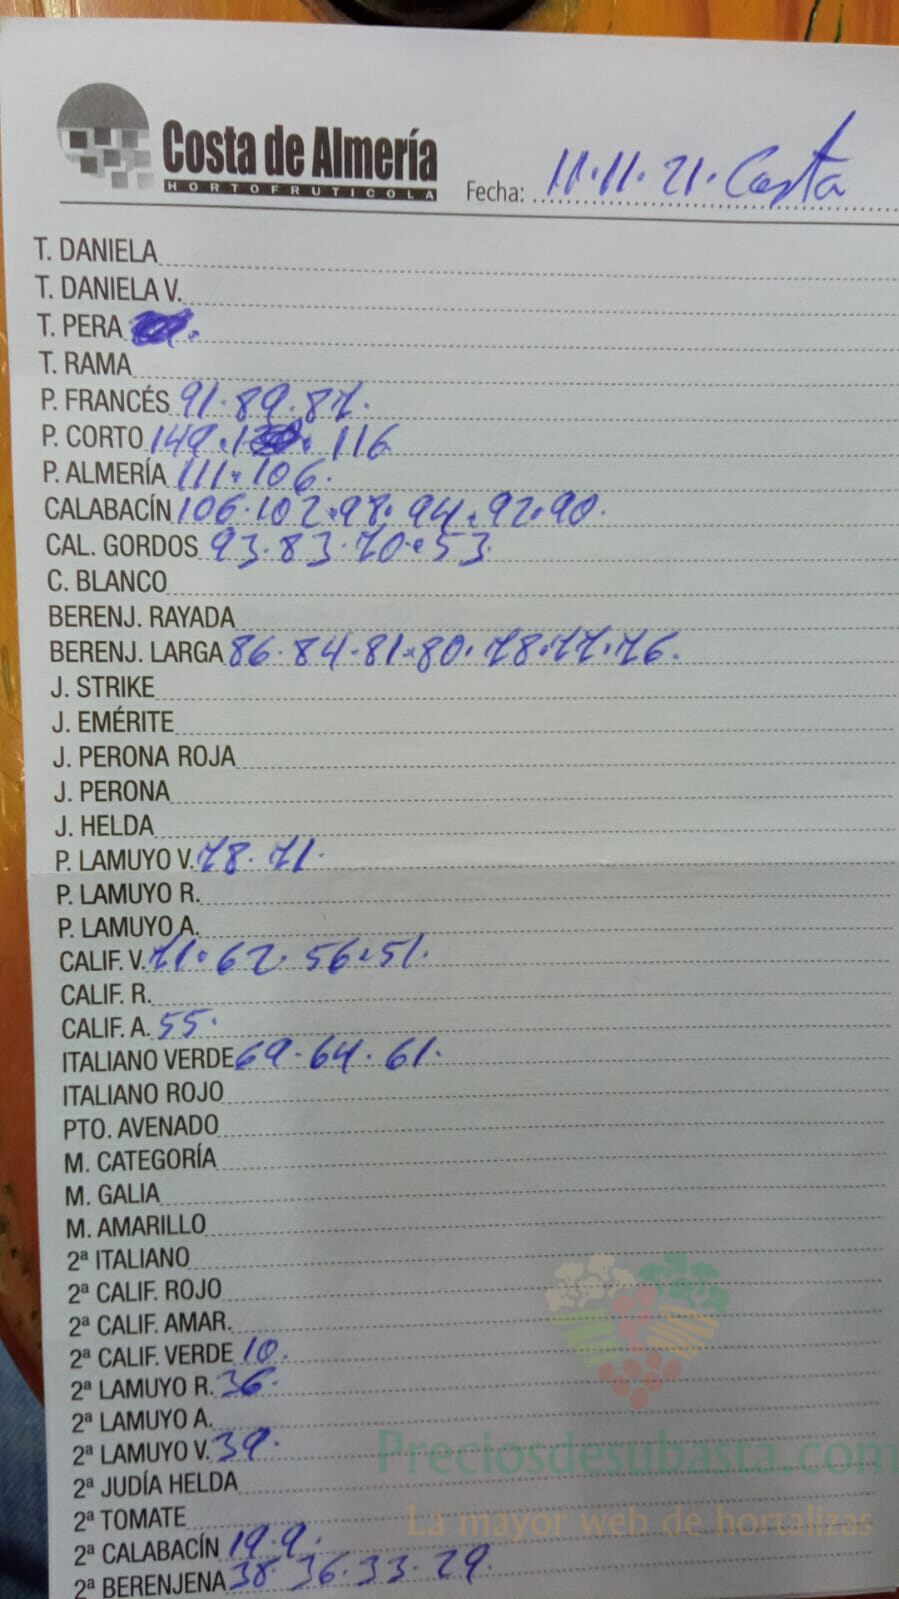 Costa de Almería
HORTOFRUTICOLA
Fecha: 11.11.21. Costa
T. DANIELA
T. DANIELA V.
T. PERA
T. RAMA
P. FRANCÉS 91.89.87.
P. CORTO 149. 116
P. ALMERÍA 111.106.
CALABACÍN 106.102.98.94.92.90.
CAL. GORDOS 93.83.70.53.
C. BLANCO
BERENJ. RAYADA
BERENJ. LARGA 86.84.81.80.78.77.76.
J. STRIKE
J. EMÉRITE
J. PERONA ROJA
J. PERONA
J. HELDA
P. LAMUYO V. 78.71.
P. LAMUYO R.
P. LAMUYO A.
CALIF. V. 71.62.56.51.
CALIF. R.
CALIF. A. 55.
ITALIANO VERDE 69.64.61.
ITALIANO ROJO
PTO. AVENADO
M. CATEGORÍA
M. GALIA
M. AMARILLO
2ª ITALIANO
2ª CALIF. ROJO
2ª CALIF. AMAR.
2ª CALIF. VERDE 10.
2ª LAMUYO R. 36.
2ª LAMUYO A.
2ª LAMUYO V. 39.
2ª JUDÍA HELDA
2ª TOMATE
2ª CALABACÍN 19.9.
2ª BERENJENA 38.36.33.29.
Preciosdesubasta.com
La mayor web de hortalizas